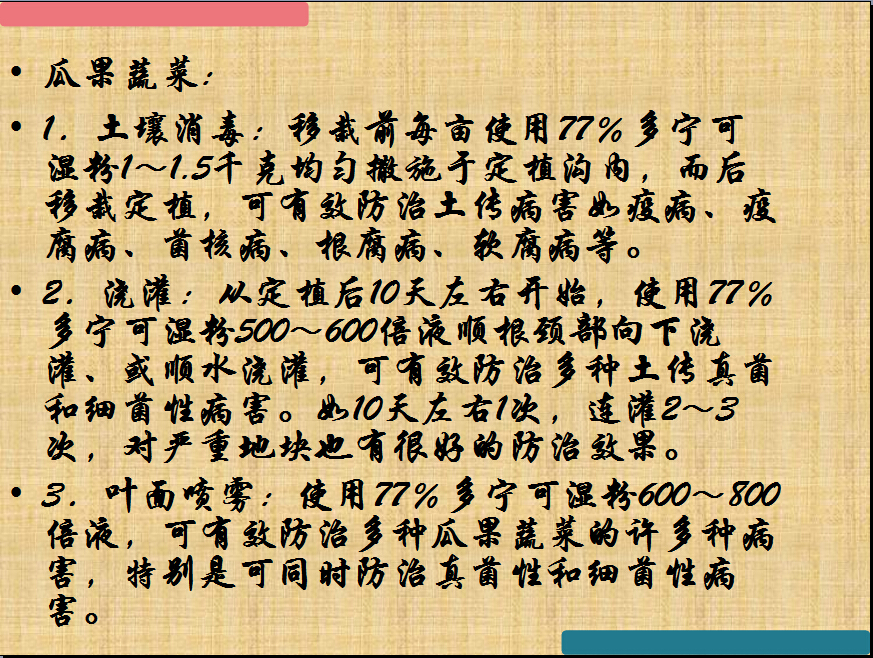 • 瓜果蔬菜：
• 1. 土壤消毒：移栽前每亩使用77％多宁可
湿粉1～1.5千克均匀撒施于定植沟内，而后
移栽定植，可有效防治土传病害如疫病、疫
腐病、菌核病、根腐病、软腐病等。
• 2. 浇灌：从定植后10天左右开始，使用77％
多宁可湿粉500～600倍液顺根颈部向下浇
灌、或顺水浇灌，可有效防治多种土传真菌
和细菌性病害。如10天左右1次，连灌2～3
次，对严重地块也有很好的防治效果。
• 3. 叶面喷雾：使用77％多宁可湿粉600～800
倍液，可有效防治多种瓜果蔬菜的许多种病
害，特别是可同时防治真菌性和细菌性病
害。